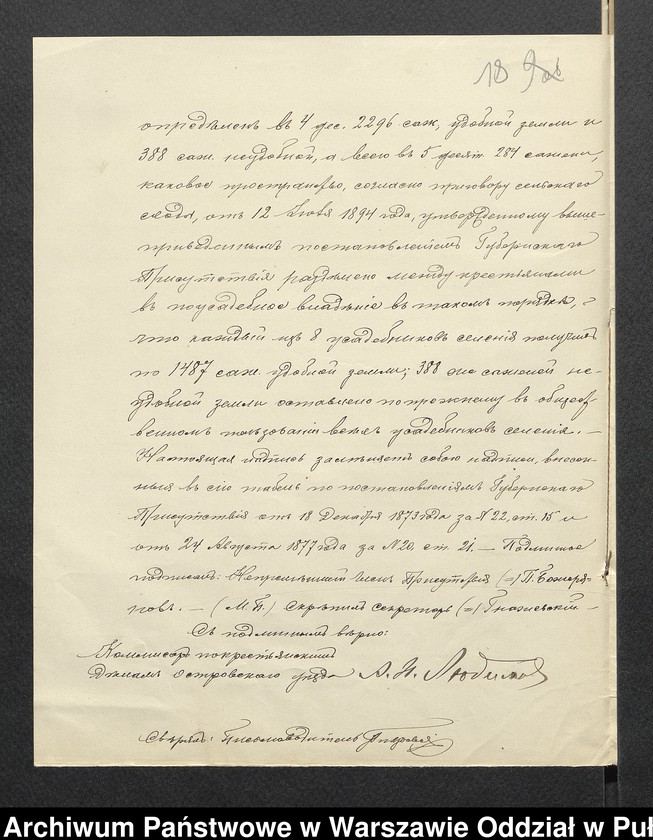 18 9об
опредѣленъ въ 4 дес. 2296 саж, удобной земли и
388 саж. неудобной, а всего въ 5 десят. 284 сажени,
каковое пространство, согласно приговору сельскаго
схода, отъ 12 Іюня 1894 года, утвержденному выше-
приведеннымъ постановленіемъ Губернскаго
Присутствія раздѣлено между крестьянами
въ поусадебное владѣніе въ такомъ порядкѣ,
что каждый изъ 8 усадебниковъ селенія получилъ
по 1487 саж. удобной земли; 388 же саженей не-
удобной земли оставлено попрежнему въ общест-
венномъ пользованіи всѣхъ усадебниковъ селенія. —
Настоящая надпись замѣняетъ собою надписи, внесен-
ныя въ сію табель по постановленіямъ Губернскаго
Присутствія отъ 18 Декабря 1873 года за № 22, ст. 15 и
отъ 24 Августа 1877 года за № 20, ст. 21. — Подлинное
подписалъ: Непремѣнный Членъ Присутствія (=) П.
новъ. — (М.П.) Скрѣпилъ секретарь (=)
Съ подлиннымъ вѣрно:
Коммисаръ по крестьянскимъ
дѣламъ Островскаго уѣзда А. Н. Любимовъ
Свѣрялъ: Письмоводитель
Archiwum Państwowe w Warszawie Oddział w Puł